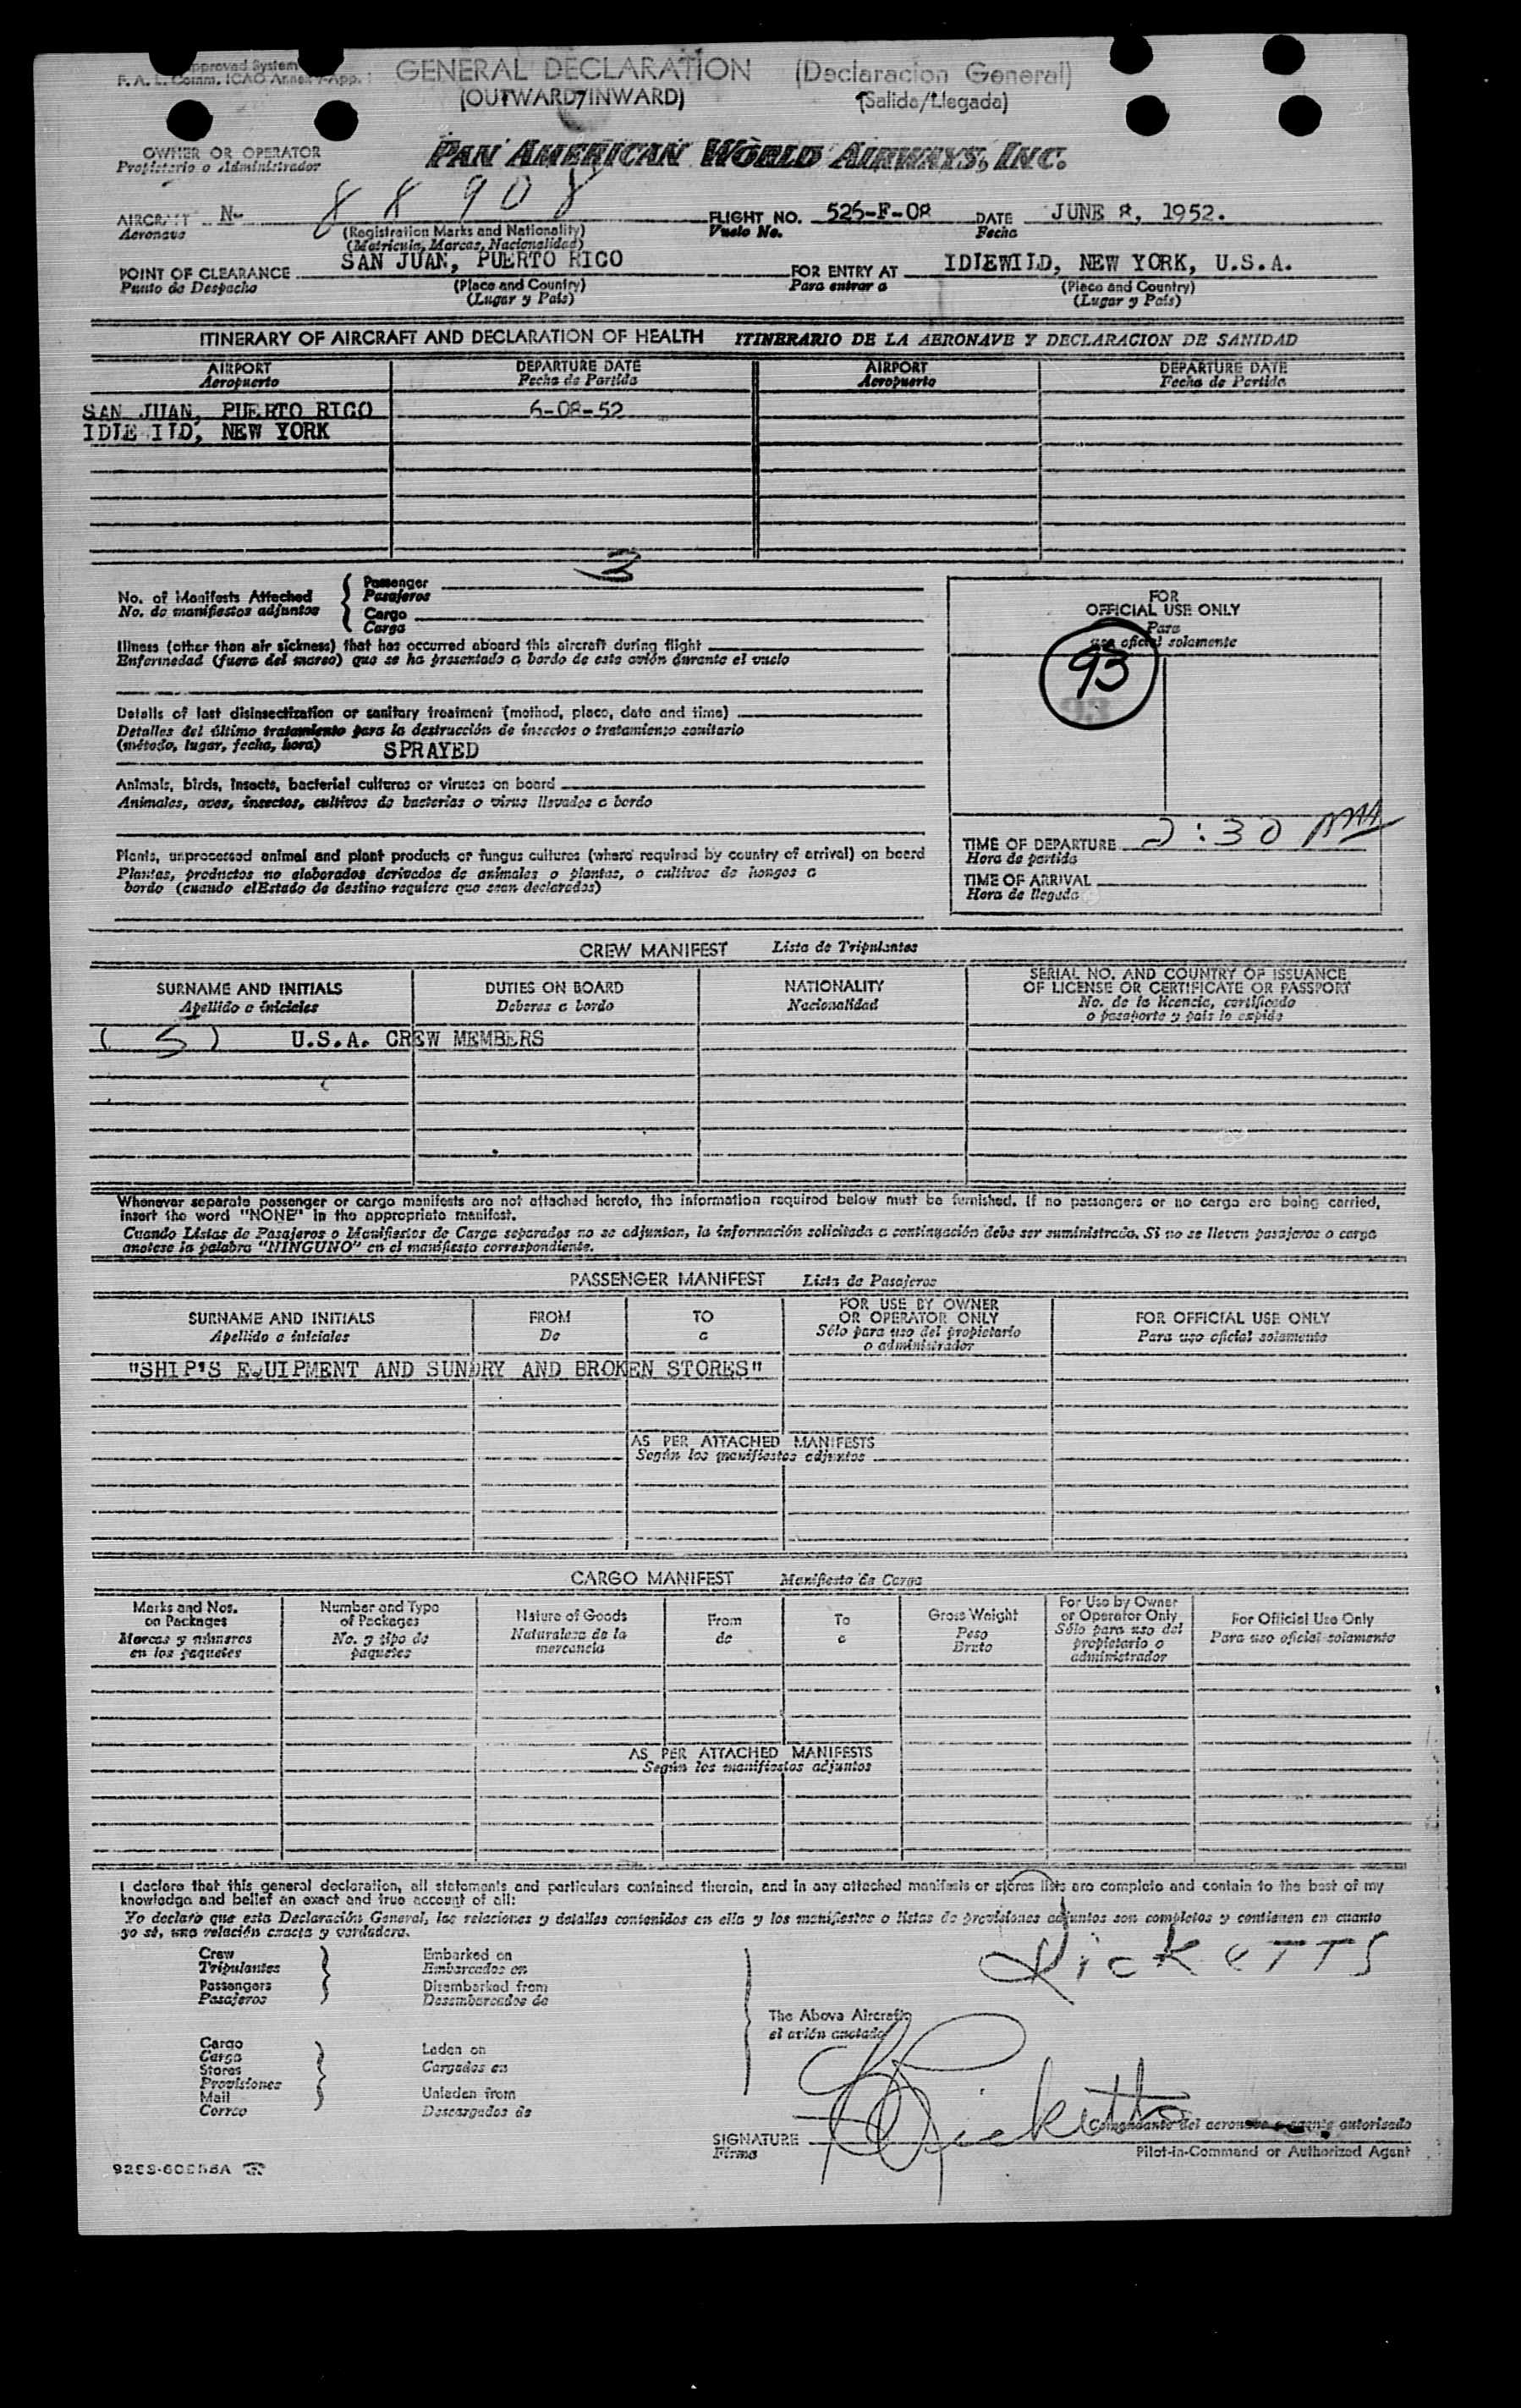 pproved System
F. A. L. Comm. ICAO Annex 9-App. 1
GENERAL DECLARATION (Declaracion General)
(OUTWARD/INWARD) (Salida/Llegada)
OWNER OR OPERATOR
Propietario o Administrador
PAN AMERICAN WORLD AIRWAYS, INC.
AIRCRAFT N- 88908 FLIGHT NO. 526-F-08 DATE JUNE 8, 1952.
Aeronave (Registration Marks and Nationality) Vuelo No. Fecha
(Matricula, Marcas, Nacionalidad)
POINT OF CLEARANCE SAN JUAN, PUERTO RICO FOR ENTRY AT IDLEWILD, NEW YORK, U.S.A.
Punto de Despacho (Place and Country) Para entrar a (Place and Country)
(Lugar y País) (Lugar y País)
ITINERARY OF AIRCRAFT AND DECLARATION OF HEALTH ITINERARIO DE LA AERONAVE Y DECLARACION DE SANIDAD
AIRPORT DEPARTURE DATE AIRPORT DEPARTURE DATE
Aeropuerto Fecha de Partida Aeropuerto Fecha de Partida
SAN JUAN, PUERTO RICO 6-08-52
IDLE ILD, NEW YORK
No. of Manifests Attached
No. de manifiestos adjuntos
Passenger 3
Pasajeros
Cargo
Carga
Illness (other than air sickness) that has occurred aboard this aircraft during flight
Enfermedad (fuera del mareo) que se ha presentado a bordo de este avión durante el vuelo
Details of last disinsectization or sanitary treatment (method, place, date and time)
Detalles del último tratamiento para la destrucción de insectos o tratamiento sanitario
(método, lugar, fecha, hora) SPRAYED
Animals, birds, insects, bacterial cultures or viruses on board
Animales, aves, insectos, cultivos de bacterias o virus llevados a bordo
Plants, unprocessed animal and plant products or fungus cultures (where required by country of arrival) on board
Plantas, productos no elaborados derivados de animales o plantas, o cultivos de hongos a
bordo (cuando el Estado de destino requiere que sean declarados)
FOR
OFFICIAL USE ONLY
Para
uso oficial solamente
93
93
TIME OF DEPARTURE 2:30
Hora de partida
TIME OF ARRIVAL
Hora de llegada
CREW MANIFEST Lista de Tripulantes
SURNAME AND INITIALS DUTIES ON BOARD NATIONALITY SERIAL NO. AND COUNTRY OF ISSUANCE
OF LICENSE OR CERTIFICATE OR PASSPORT
Apellido e iniciales Deberes a bordo Nacionalidad No. de la licencia, certificado
o pasaporte y país lo expide
( 5 ) U.S.A. CREW MEMBERS
Whenever separate passenger or cargo manifests are not attached hereto, the information required below must be furnished. If no passengers or no cargo are being carried,
insert the word "NONE" in the appropriate manifest.
Cuando Listas de Pasajeros o Manifiestos de Carga separados no se adjuntan, la información solicitada a continuación debe ser suministrada. Si no se lleven pasajeros o carga
anotese la palabra "NINGUNO" en el manifiesto correspondiente.
PASSENGER MANIFEST Lista de Pasajeros
SURNAME AND INITIALS FROM TO FOR USE BY OWNER
OR OPERATOR ONLY FOR OFFICIAL USE ONLY
Apellido e iniciales De a Sólo para uso del propietario
o administrador Para uso oficial solamente
"SHIP'S EQUIPMENT AND SUNDRY AND BROKEN STORES"
AS PER ATTACHED MANIFESTS
Según los manifiestos adjuntos
CARGO MANIFEST Manifiesto de Carga
Marks and Nos.
on Packages
Marcas y números
en los paquetes
Number and Type
of Packages
No. y tipo de
paquetes
Nature of Goods
Naturaleza de la
mercancía
From
de
To
a
Gross Weight
Peso
Bruto
For Use by Owner
or Operator Only
Sólo para uso del
propietario o
administrador
For Official Use Only
Para uso oficial solamente
AS PER ATTACHED MANIFESTS
Según los manifiestos adjuntos
I declare that this general declaration, all statements and particulars contained therein, and in any attached manifests or stores lists are complete and contain to the best of my
knowledge and belief an exact and true account of all:
Yo declaro que esta Declaración General, las relaciones y detalles contenidos en ella y los manifiestos o listas de provisiones adjuntos son completos y contienen en cuanto
yo sé, una relación exacta y verdadera.
Crew
Tripulantes
Passengers
Pasajeros
Embarked on
Embarcados en
Disembarked from
Desembarcados de
RICKETTS
The Above Aircraft
el avión anotado
Cargo
Carga
Stores
Provisiones
Mail
Correo
Laden on
Cargados en
Unladen from
Descargados de
Ricketts
Comandante del aeronave o agente autorizado
SIGNATURE
Firma
Pilot-in-Command or Authorized Agent